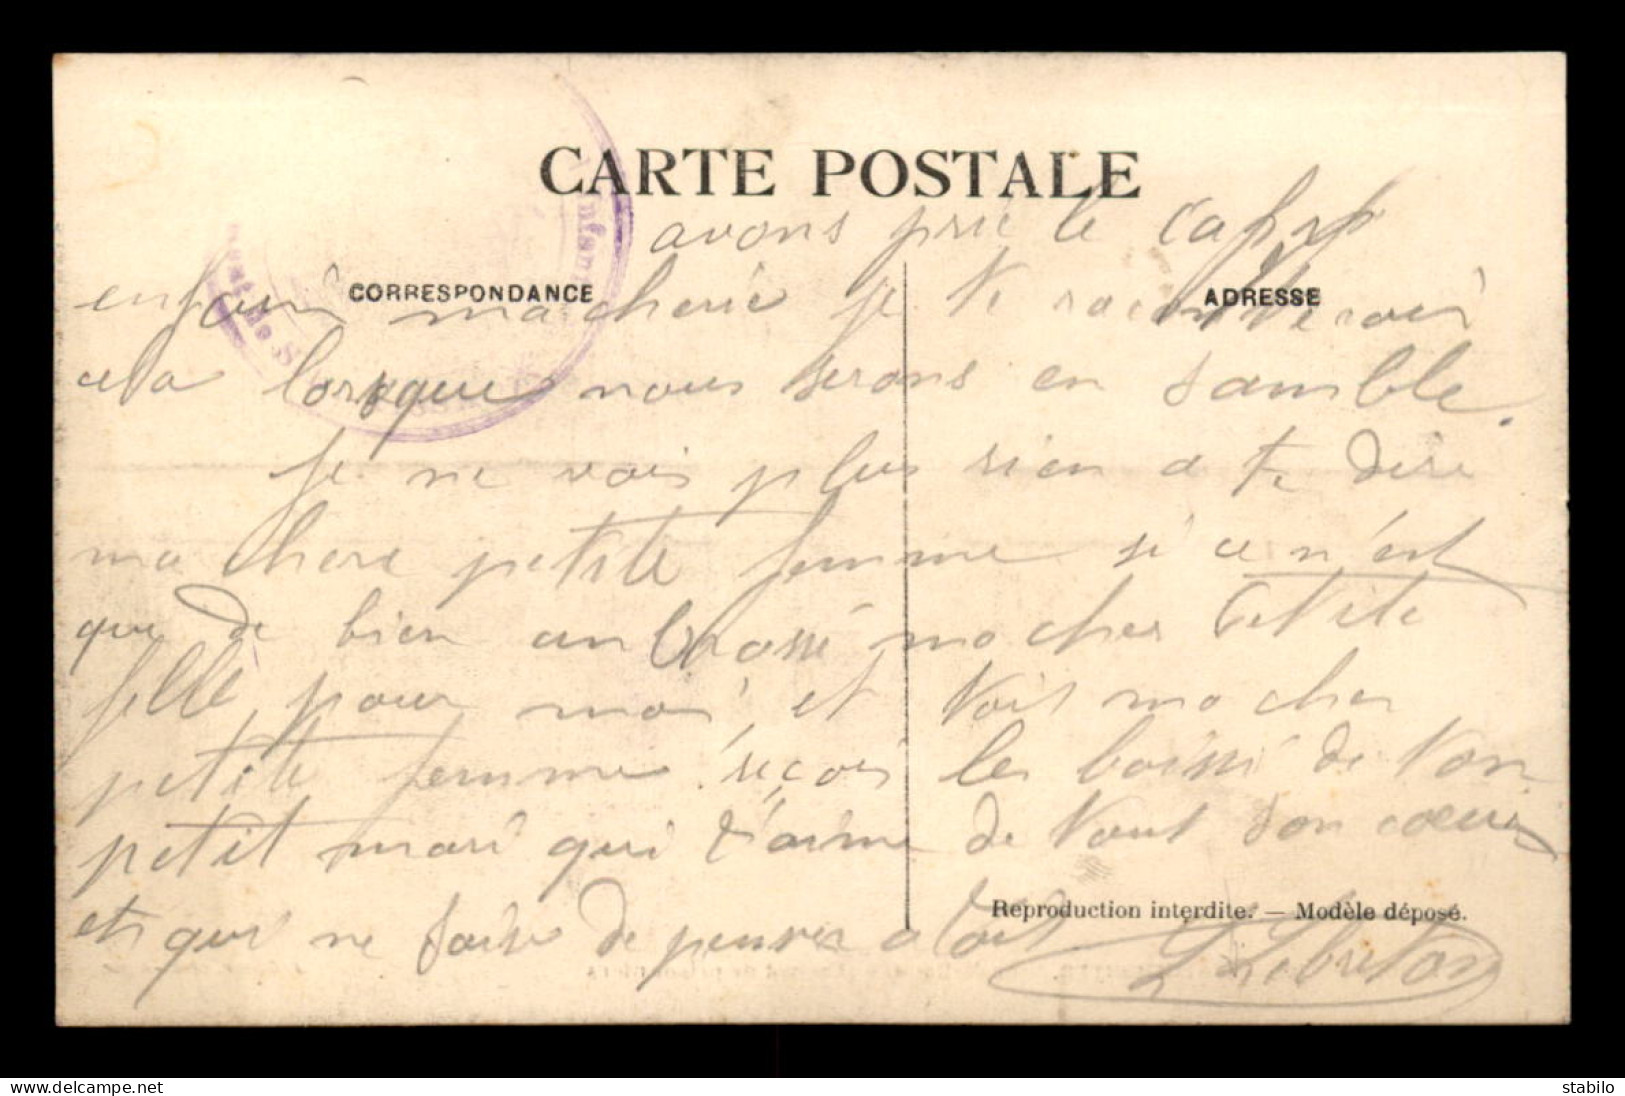 CARTE POSTALE
avons prie le
CORRESPONDANCE
ADRESSE
enfain ma cherie je te raconterais
cela lorsque nous serons en samble.
Je ne vois plus rien a te dire
ma chere petite femme si ce n'est
que de bien anbrassé ma cher Petite
fille pour moi, et toit ma cher
petite femme reçois les baissé de ton
petit mari qui t'aime de tout son coeur
et qui ne faise de penser a toit
Reproduction interdite. — Modèle déposé.
Lebreton
delcampe.net
stabilo